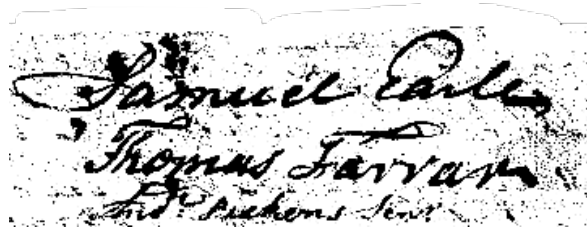 Samuel Earle
Thomas Farrar
Andw Pickens Senr